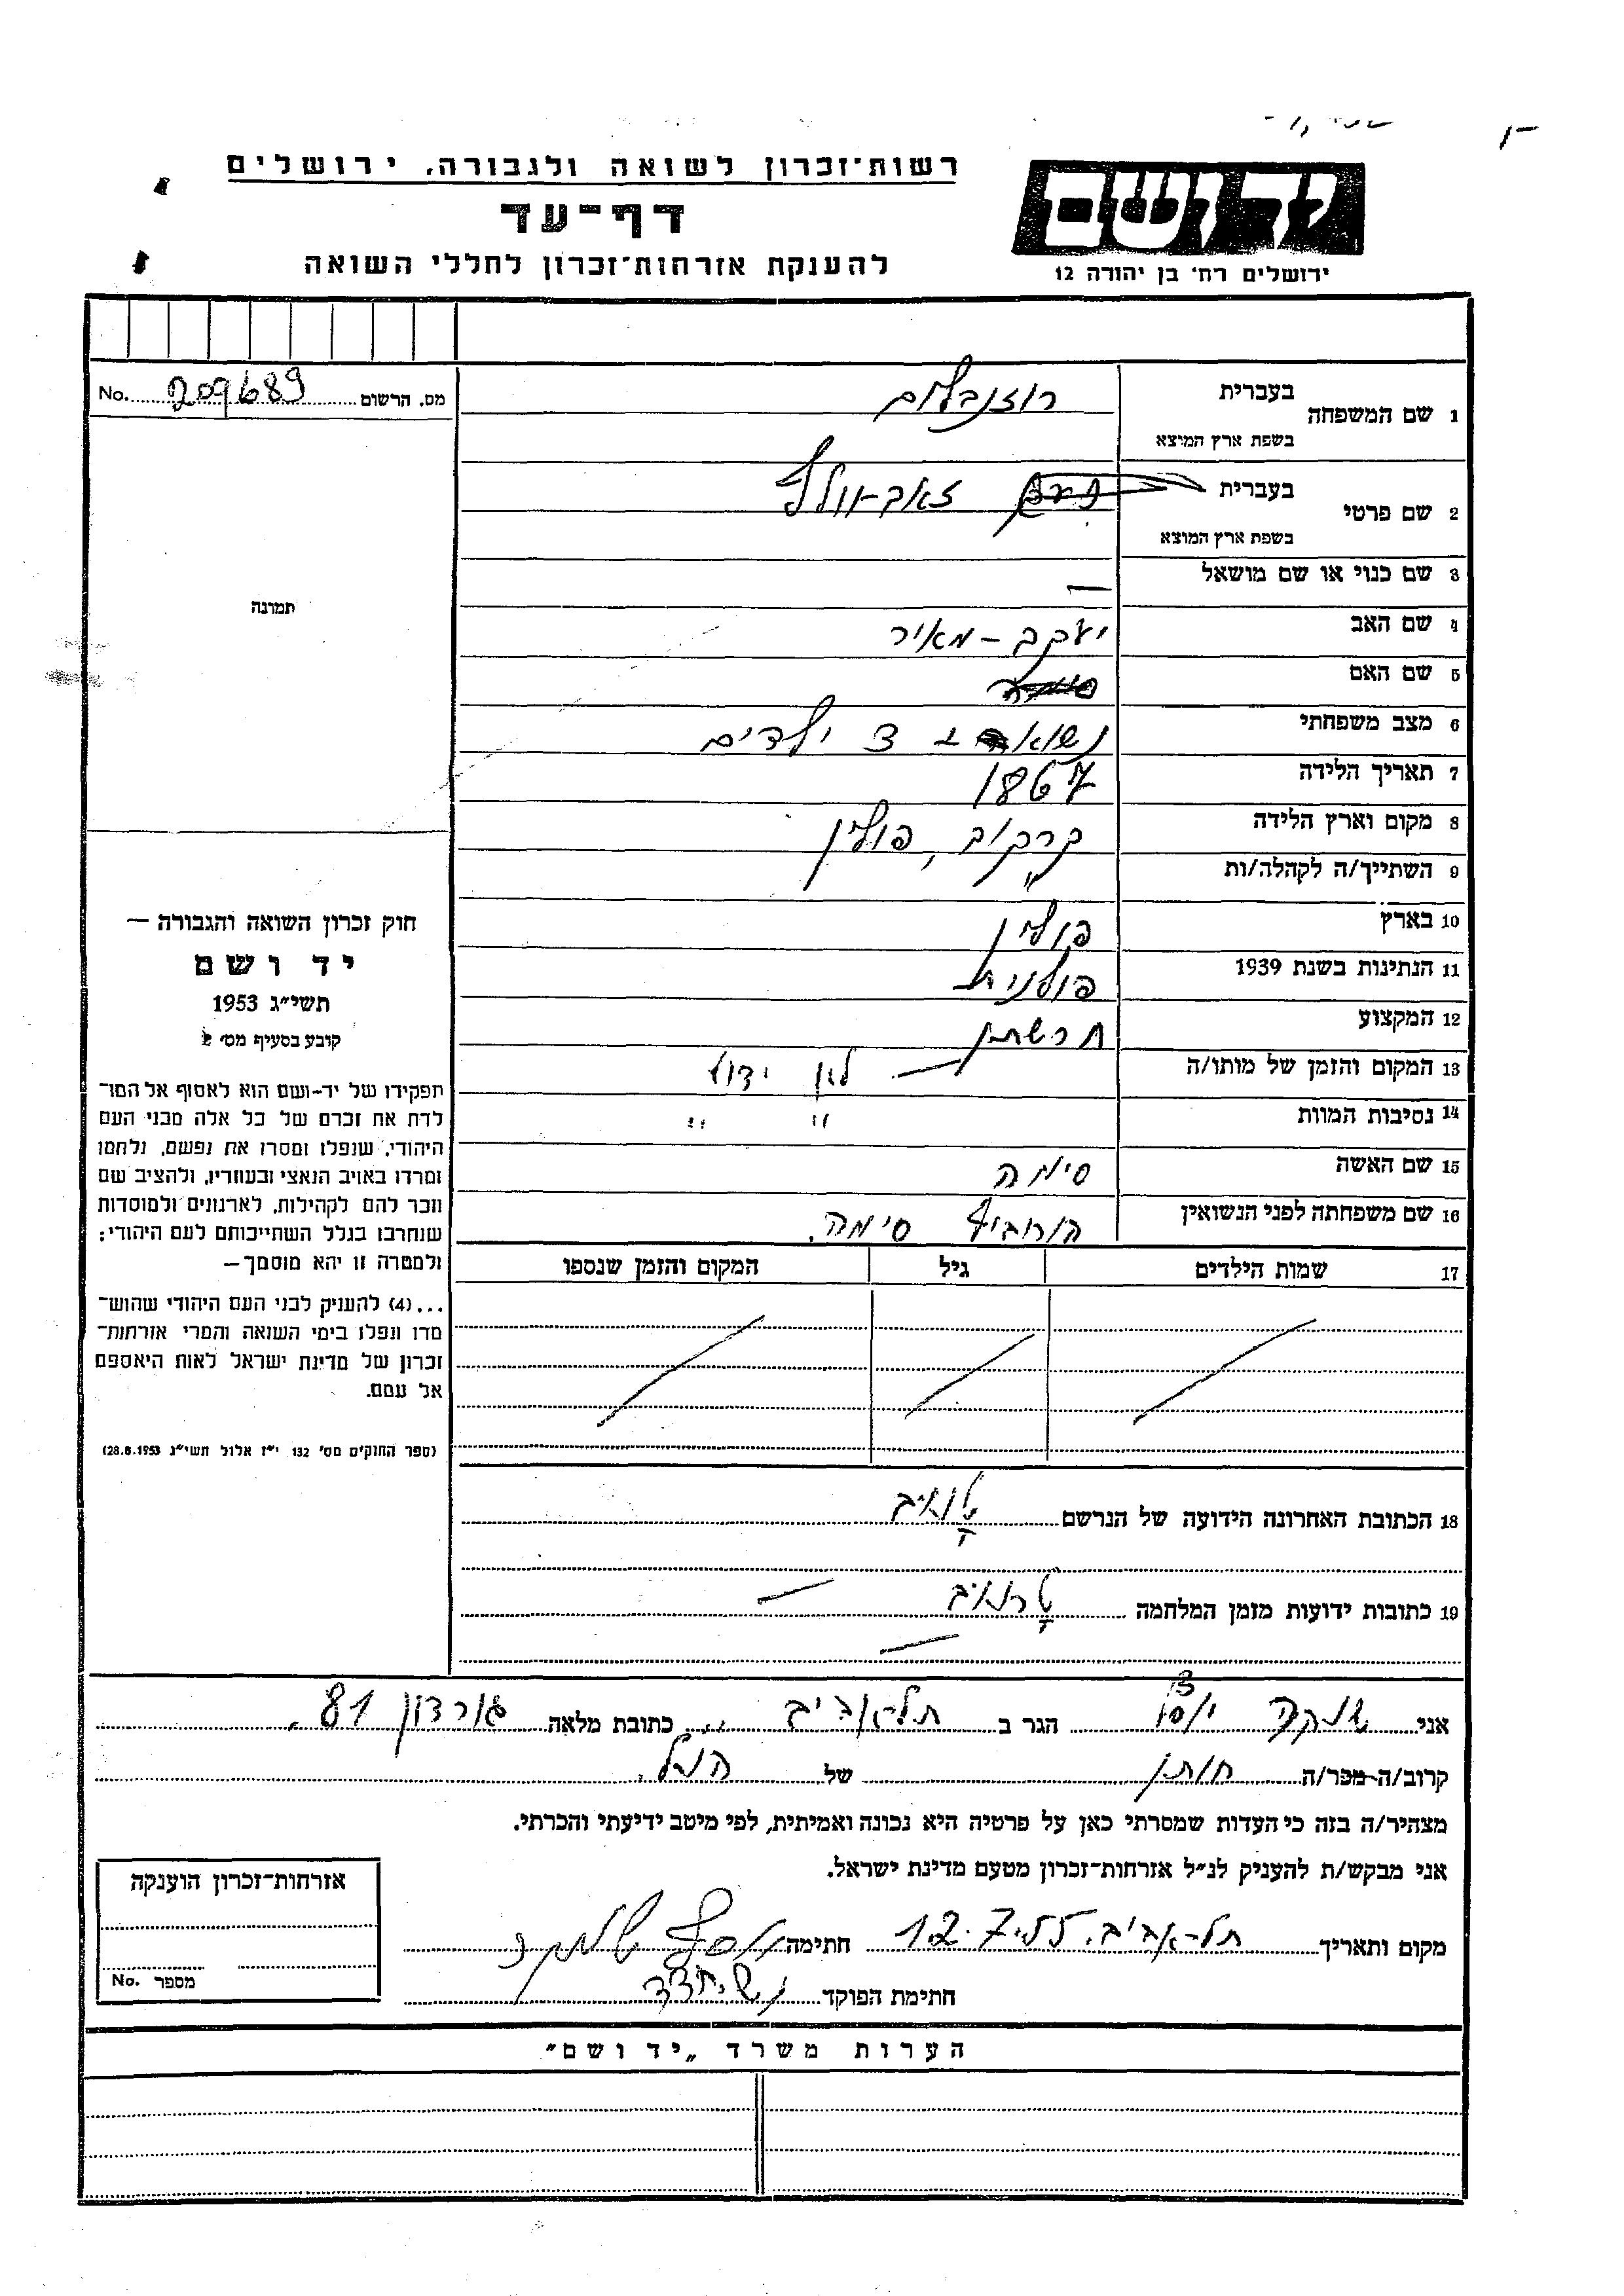 רשות־זכרון לשואה ולגבורה, ירושלים
יד ושם
דף־עד
להענקת אזרחות־זכרון לחללי השואה
ירושלים רח' בן יהודה 12
מס. הרשום 209689 No.
1 שם המשפחה בעברית רוזנבלום
בשפת ארץ המוצא
2 שם פרטי בעברית זאב-וולף
בשפת ארץ המוצא
3 שם כנוי או שם מושאל —
4 שם האב יעקב - מאיר
5 שם האם
6 מצב משפחתי נשוא 3 ילדים
7 תאריך הלידה 1867
8 מקום וארץ הלידה קרקוב, פולין
9 השתייך/ה לקהלה/ות "
10 בארץ פולין
11 הנתינות בשנת 1939 פולנית
12 המקצוע חרשתן
13 המקום והזמן של מותו/ה — לא ידוע
14 נסיבות המוות " "
15 שם האשה סימה
16 שם משפחתה לפני הנשואין הורוביץ סימה.
17 שמות הילדים גיל המקום והזמן שנספו
תמונה
חוק זכרון השואה והגבורה —
יד ושם
תשי״ג 1953
קובע בסעיף מס' 2
תפקידו של יד-ושם הוא לאסוף אל המו־
לדת את זכרם של כל אלה מבני העם
היהודי, שנפלו ומסרו את נפשם, נלחמו
ומרדו באויב הנאצי ובעוזריו, ולהציב שם
וזכר להם לקהילות, לארגונים ולמוסדות
שנחרבו בגלל השתייכותם לעם היהודי;
ולמטרה זו יהא מוסמך —
...(4) להעניק לבני העם היהודי שהוש־
מדו ונפלו בימי השואה והמרי אזרחות־
זכרון של מדינת ישראל לאות היאספם
אל עמם.
(ספר החוקים מס' 132 י״ז אלול תשי״ג 28.8.1953)
18 הכתובת האחרונה הידועה של הנרשם
19 כתובות ידועות מזמן המלחמה —
—
אני הגר ב תל-אביב כתובת מלאה גורדון 81.
קרוב/ה מכר/ה חותן של הנ״ל.
מצהיר/ה בזה כי העדות שמסרתי כאן על פרטיה היא נכונה ואמיתית, לפי מיטב ידיעתי והכרתי.
אני מבקש/ת להעניק לנ״ל אזרחות־זכרון מטעם מדינת ישראל.
מקום ותאריך תל-אביב. 12.7.55 חתימה
חתימת הפוקד
אזרחות־זכרון הוענקה
מספר No.
הערות משרד „יד ושם״